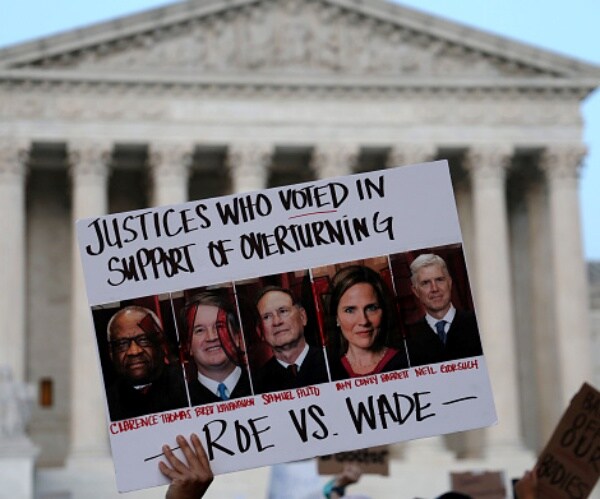 JUSTICES WHO VOTED IN
SUPPORT OF OVERTURNING
CLARENCE THOMAS BRETT KAVANAUGH SAMUEL ALITO AMY CONEY BARRETT NEIL GORSUCH
— ROE VS. WADE —
OUR
BODIES